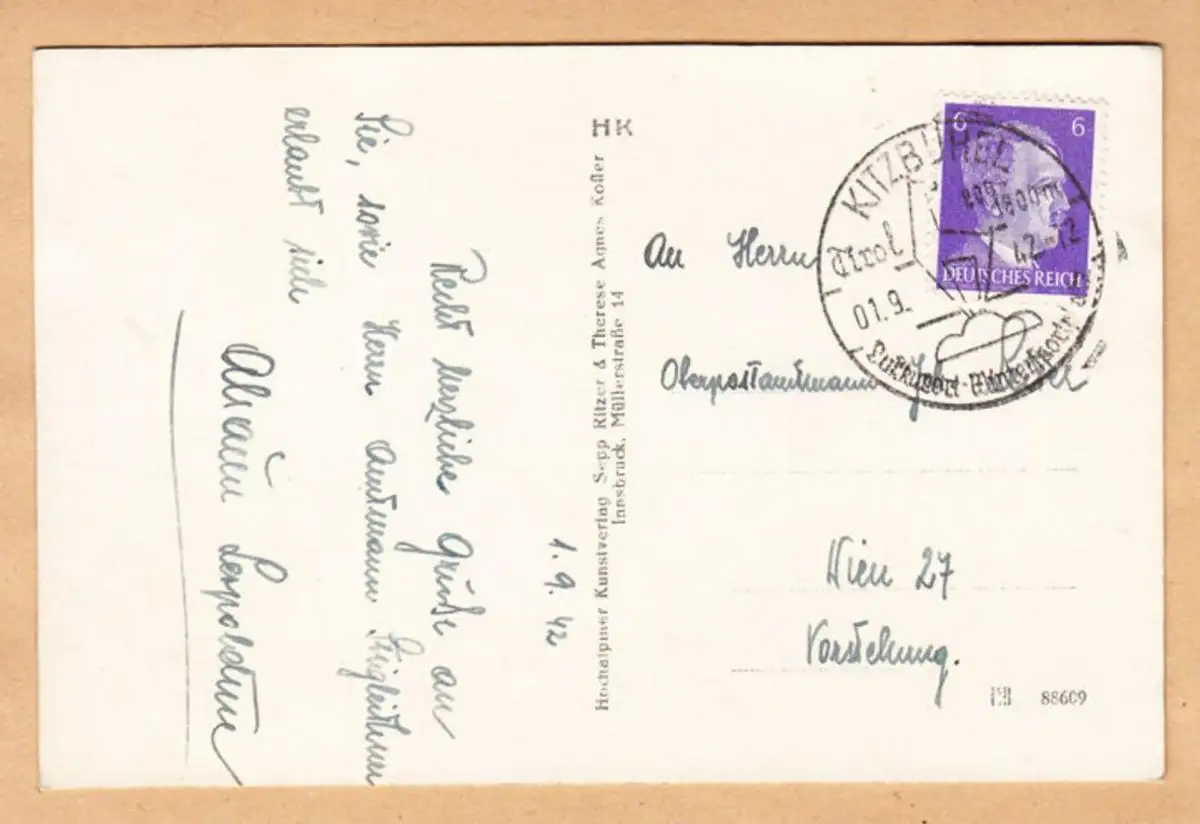 1. 9. 42
Recht herzliche Grüße an
Sie, sowie Herrn Amtmann
erlaubt sich
Leopoldine
HK
Hochalpiner Kunstverlag Sepp Ritzer & Therese Agnes Kofler
Innsbruck, Müllerstraße 14
6 6
DEUTSCHES REICH
KITZBÜHEL
Tirol
01.9. 42-12
Luftkurort-Wintersport
An Herrn
Oberpostamtmann
Wien 27
Vorstehung.
88609